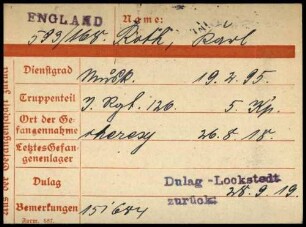 ENGLAND Name:
593/168. Roth, Karl
Dienstgrad Musk. 19.2.95.
Truppenteil J. Rgt. 120. 5. Kp.
Ort der Gefangennahme 26.8.18.
Letztes Gefangenenlager
Dulag Dulag-Lockstedt
28.9.19.
zurück:
Bemerkungen
Form. 587.
Aus der Gefangenschaft zurück